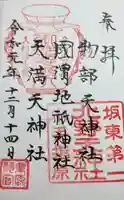 奉拝
坂東第一
物部天神社
國渭地祇神社
天満天神社
令和元年十二月十四日